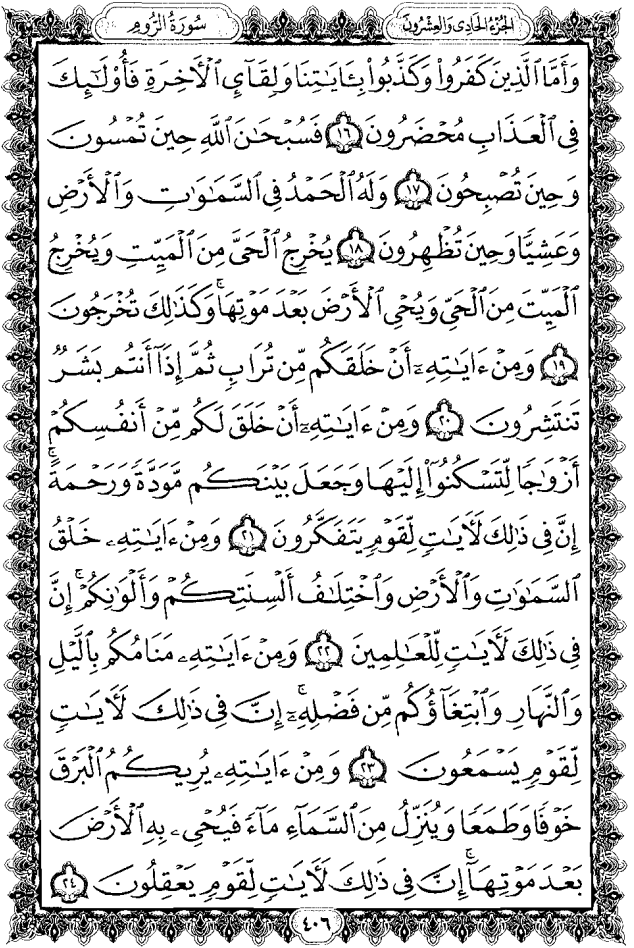 سُورَةُ الرُّومِ
الجُزْءُ الحَادِي وَالعِشْرُونَ
وَأَمَّا ٱلَّذِينَ كَفَرُواْ وَكَذَّبُواْ بِـَٔايَٰتِنَا وَلِقَآيِٕ ٱلْأٓخِرَةِ فَأُوْلَٰٓئِكَ
فِي ٱلْعَذَابِ مُحْضَرُونَ ١٦ فَسُبْحَٰنَ ٱللَّهِ حِينَ تُمْسُونَ
وَحِينَ تُصْبِحُونَ ١٧ وَلَهُ ٱلْحَمْدُ فِي ٱلسَّمَٰوَٰتِ وَٱلْأَرْضِ
وَعَشِيًّا وَحِينَ تُظْهِرُونَ ١٨ يُخْرِجُ ٱلْحَيَّ مِنَ ٱلْمَيِّتِ وَيُخْرِجُ
ٱلْمَيِّتَ مِنَ ٱلْحَيِّ وَيُحْيِ ٱلْأَرْضَ بَعْدَ مَوْتِهَا ۚ وَكَذَٰلِكَ تُخْرَجُونَ
١٩ وَمِنْ ءَايَٰتِهِۦٓ أَنْ خَلَقَكُم مِّن تُرَابٍ ثُمَّ إِذَآ أَنتُم بَشَرٌ
تَنتَشِرُونَ ٢٠ وَمِنْ ءَايَٰتِهِۦٓ أَنْ خَلَقَ لَكُم مِّنْ أَنفُسِكُمْ
أَزْوَٰجًا لِّتَسْكُنُوٓاْ إِلَيْهَا وَجَعَلَ بَيْنَكُم مَّوَدَّةً وَرَحْمَةً ۚ
إِنَّ فِي ذَٰلِكَ لَأٓيَٰتٍ لِّقَوْمٍ يَتَفَكَّرُونَ ٢١ وَمِنْ ءَايَٰتِهِۦ خَلْقُ
ٱلسَّمَٰوَٰتِ وَٱلْأَرْضِ وَٱخْتِلَٰفُ أَلْسِنَتِكُمْ وَأَلْوَٰنِكُمْ ۚ إِنَّ
فِي ذَٰلِكَ لَأٓيَٰتٍ لِّلْعَٰلِمِينَ ٢٢ وَمِنْ ءَايَٰتِهِۦ مَنَامُكُم بِٱلَّيْلِ
وَٱلنَّهَارِ وَٱبْتِغَآؤُكُم مِّن فَضْلِهِۦٓ ۚ إِنَّ فِي ذَٰلِكَ لَأٓيَٰتٍ
لِّقَوْمٍ يَسْمَعُونَ ٢٣ وَمِنْ ءَايَٰتِهِۦ يُرِيكُمُ ٱلْبَرْقَ
خَوْفًا وَطَمَعًا وَيُنَزِّلُ مِنَ ٱلسَّمَآءِ مَآءً فَيُحْيِۦ بِهِ ٱلْأَرْضَ
بَعْدَ مَوْتِهَآ ۚ إِنَّ فِي ذَٰلِكَ لَأٓيَٰتٍ لِّقَوْمٍ يَعْقِلُونَ ٢٤
٤٠٦